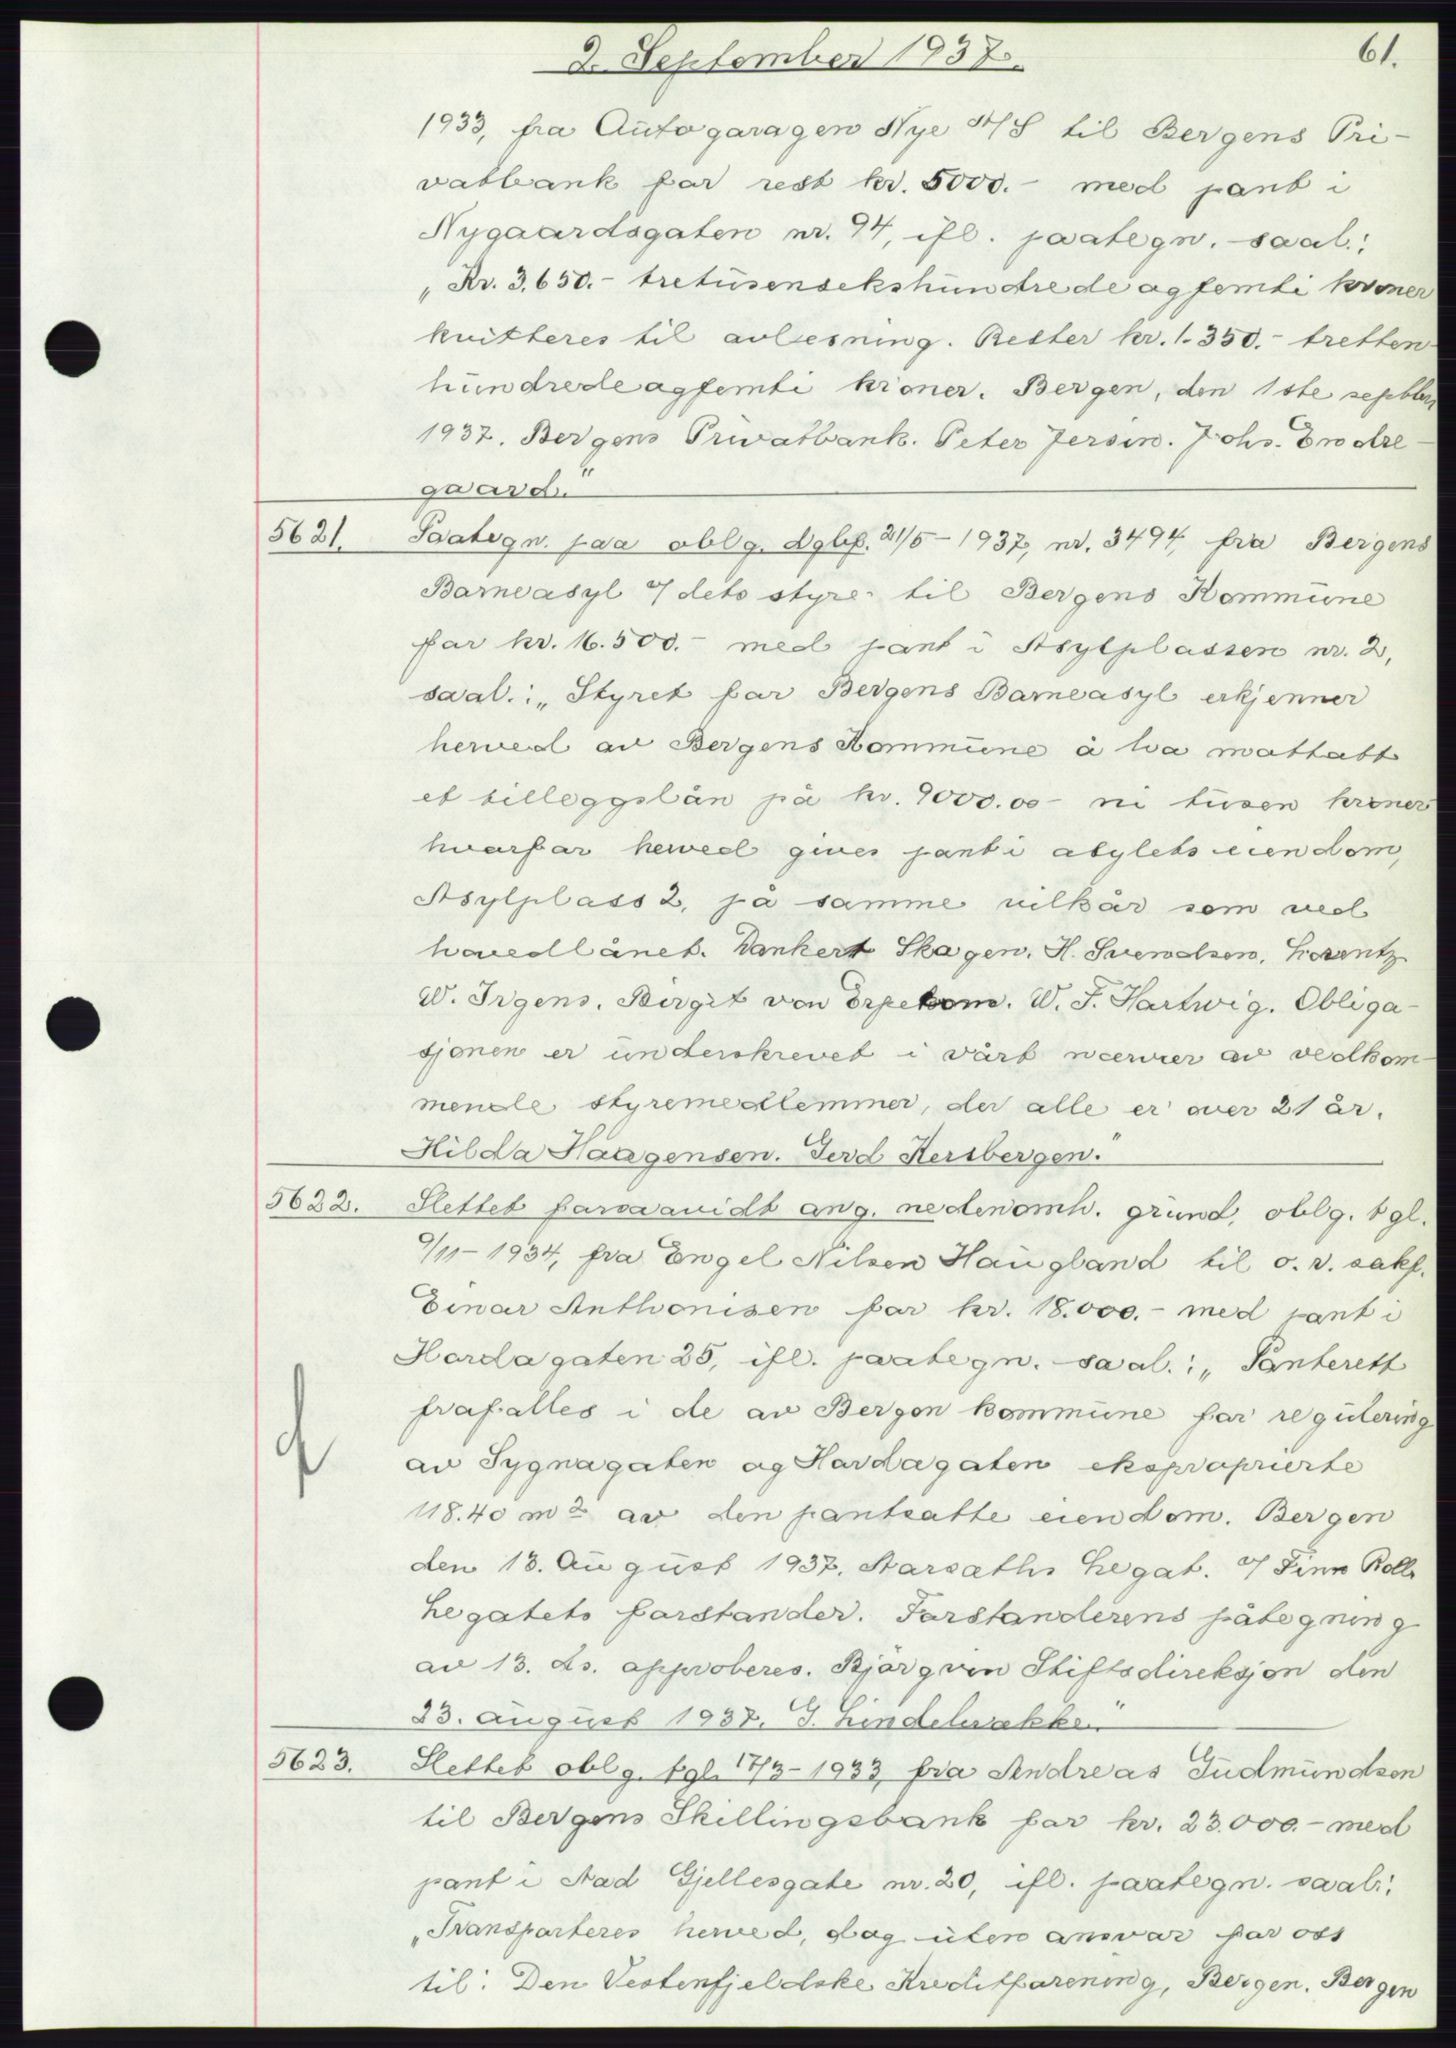 2. September 1937.
61.
1933, fra Autogaragen Nye A/S til Bergens Pri-
vatbank for rest kr. 5000.- med pant i
Nygaardsgaten nr. 94, ifl. paategn. saal.:
„Kr. 3.650.- tretusensekshundredeogfemti kroner
kvitteres til avløsning. Rester kr. 1.350.- tretten-
hundredeogfemti kroner. Bergen, den 1ste septbr
1937. Bergens Privatbank. Peter Jersin. Johs. Endre-
gaard."
5621. Paategn. paa oblg. dgbf. 21/5-1937, nr. 3494, fra Bergens
Barneasyl v/ dets styre til Bergens Kommune
for kr. 16.500.- med pant i Asylplassen nr. 2,
saal.: „Styret for Bergens Barneasyl erkjenner
herved av Bergens Kommune å ha mottatt
et tilleggslån på kr. 9000.00 - ni tusen kroner
hvorfor herved gives pant i asylets eiendom,
Asylplass 2, på samme vilkår som ved
hovedlånet. Dankert Skagen. H. Svendsen. Lorentz
W. Irgens. Birgit von Erpekom. W. F. Hartwig. Obliga-
sjonen er underskrevet i vårt nærvær av vedkom-
mende styremedlemmer, der alle er over 21 år.
Hilda Haagensen. Gerd Kersbergen."
5622. Slettet forsaavidt ang. nedenomh. grund, oblg. tgl.
9/11-1934, fra Engel Nilsen Haugland til o.r.sakf.
Einar Anthonisen for kr. 18.000.- med pant i
Hardagaten 25, ifl. paategn. saal.: „Panterett
frafalles i de av Bergen kommune for regulering
av Sygnagaten og Hardagaten eksproprierte
118.40 m2 av den pantsatte eiendom. Bergen
den 13. August 1937. Aarsaths Legat. v/ Finn Rolls
Legatets forstander. Forstanderens påtegning
av 13. ds. approberes. Bjørgvin Stiftsdireksjon den
23. august 1937. G. Lindebrække."
5623. Slettet oblg. tgl. 17/3-1933, fra Andreas Gudmundsen
til Bergens Skillingsbank for kr. 23.000.- med
pant i Aad Gjellesgate nr. 20, ifl. paategn. saal.:
„Transporteres herved, dog uten ansvar for oss
til: Den Vestenfjeldske Kreditforening, Bergen. Bergen